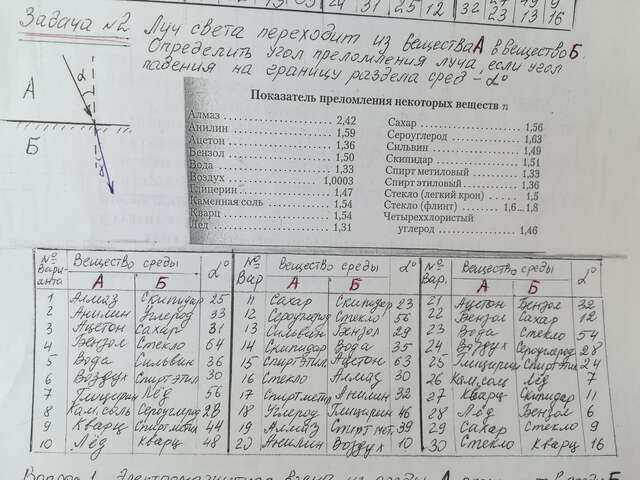 503 24 31 25 12 32 27 13 16
23
Задача №2. Луч света переходит из вещества А в вещество Б.
Определить угол преломления луча, если угол
падения на границу раздела сред - α°
А
α
Б
Показатель преломления некоторых веществ n
Алмаз 2,42
Анилин 1,59
Ацетон 1,36
Бензол 1,50
Вода 1,33
Воздух 1,0003
Глицерин 1,47
Каменная соль 1,54
Кварц 1,54
Лед 1,31
Сахар 1,56
Сероуглерод 1,63
Сильвин 1,49
Скипидар 1,51
Спирт метиловый 1,33
Спирт этиловый 1,36
Стекло (легкий крон) 1,5
Стекло (флинт) 1,6...1,8
Четыреххлористый
углерод 1,46
№ Вари-анта Вещество среды А Б α°
1 Алмаз Скипидар 25
2 Анилин Углерод 33
3 Ацетон Сахар 31
4 Бензол Стекло 64
5 Вода Сильвин 36
6 Воздух Спирт этил 30
7 Глицерин Лёд 56
8 Кам.соль Сероуглерод 28
9 Кварц Спирт метил 44
10 Лёд Кварц 48
№ Вар Вещество среды А Б α°
11 Сахар Скипидар 23
12 Сероуглерод Стекло 56
13 Сильвин Бензол 29
14 Скипидар Вода 35
15 Спирт этил. Ацетон 63
16 Стекло Алмаз 30
17 Спирт метил Анилин 32
18 Углерод Глицерин 46
19 Алмаз Спирт мет. 39
20 Анилин Воздух 10
№ Вар. Вещество среды А Б α°
21 Ацетон Бензол 32
22 Бензол Сахар 12
23 Вода Стекло 54
24 Воздух Сероуглерод 28
25 Глицерин Спирт этил 24
26 Кам.соль Лёд 7
27 Кварц Скипидар 11
28 Лёд Бензол 6
29 Сахар Стекло 9
30 Стекло Кварц 16
Вопрос 1. Электромагнитная волна из среды А